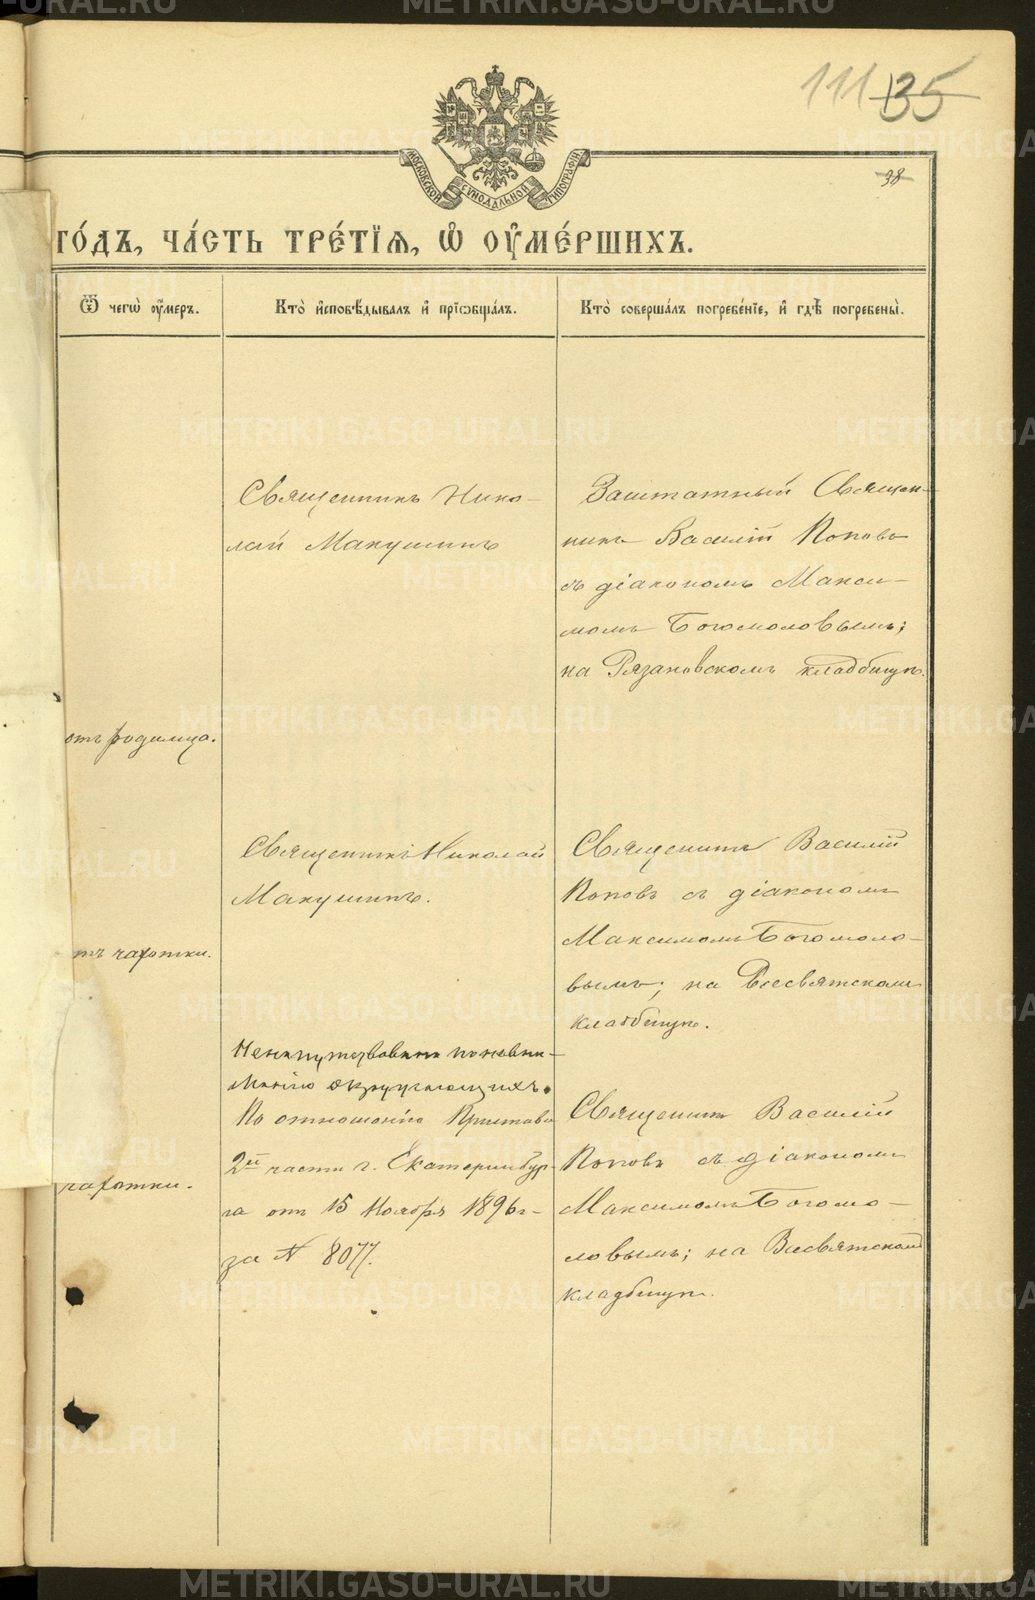 111 135
38
МОСКОВСКОЙ СѴНОДАЛЬНОЙ ТИПОГРАФІИ
ГО́ДЪ, ЧА́СТЬ ТРЕ́ТІѦ, Ѡ҆ ОУ҆МЕ́РШИХЪ.
Ѿ чегѡ̀ оу҆́меръ.
Кто̀ и҆сповѣ́дывалъ и҆ прїѡбща́лъ.
Кто̀ соверша́лъ погребе́нїе, и҆ гдѣ̀ погребены̀.
Священникъ Нико-
лай Макушинъ
Заштатный Священ-
никъ Василій Поповъ
съ діакономъ Макси-
момъ Богомоловымъ;
на Рязановскомъ кладбищѣ.
отъ родимца.
Священникъ Николай
Макушинъ.
Священникъ Василій
Поповъ съ діакономъ
Максимомъ Богомоло-
вымъ; на Всесвятскомъ
кладбищѣ.
тъ чахотки.
Ненапутствованъ по невни-
манію окружающихъ.
По отношенію Пристава
2й части г. Екатеринбур-
га отъ 15 Ноября 1896 г.
за № 8077.
Священникъ Василій
Поповъ съ діакономъ
Максимомъ Богомо-
ловымъ; на Всесвятскомъ
кладбищѣ.
чахотки.
METRIKI.GASO-URAL.RU